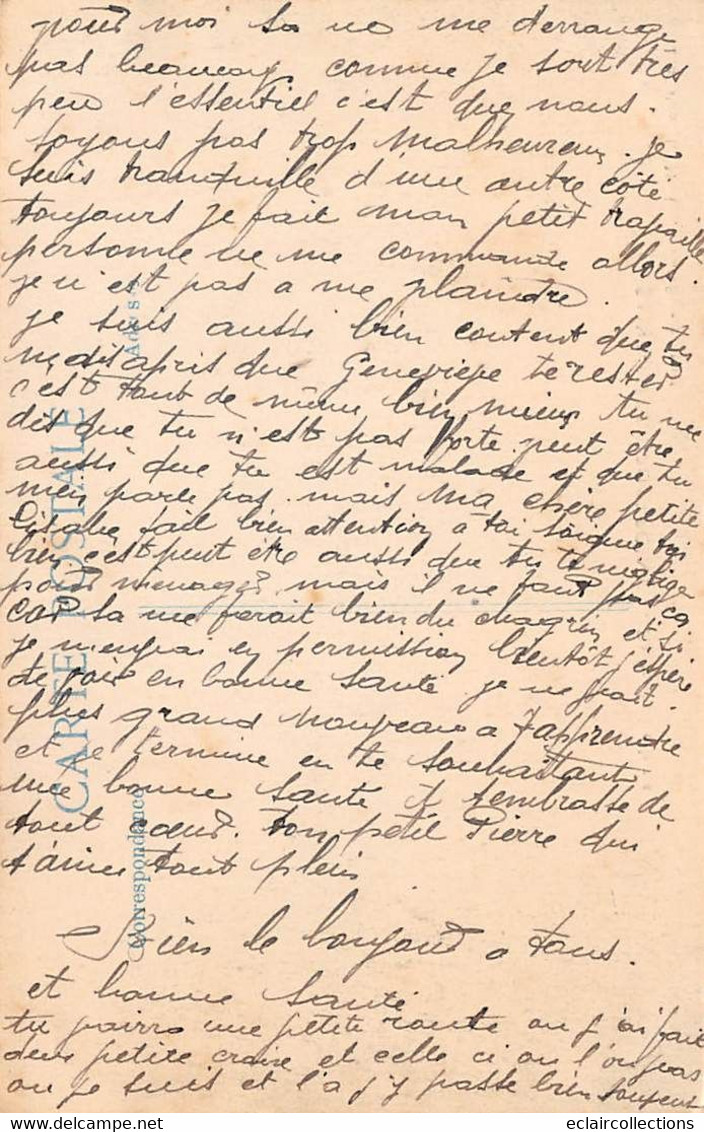 pour moi sa no me derrange
pas beaucoup comme je sort très
peu l'essentiel c'est que nous.
soyons pas trop malheureux. je
suis tranquille d'une autre côté
toujours je fait mon petit trapaille
personne ne me commande allors.
je n'est pas a me plaindre.
je suis aussi bien content que tu
m'es apris que Genevieve te rester
c'est tout de même bien mieux tu me
dit que tu n'est pas forte peut être
aussi que tu est malade et que tu
m'en parle pas. mais ma chère petite
fait bien attention a toi soigne toi
bien c'est peut être aussi que tu te néglige
pour menager mais il ne faut pas ça
car sa me ferait bien du chagrin et si
je m'en vai en permission bientôt j'espère
te voir en bonne santé je ne sait.
plus grand nouveau a t'apprendre
et je termine en te souhaitant
une bonne santé et t'embrasse de
tout cœur. ton petit Pierre qui
t'aime tout plein
Bien le bonjour a tous.
et bonne santé
tu vairra une petite route ou j'ai fait
deux petite croix et celle ci ou l'on pas
ou je suis et l'a j'y passe bien souvent
CARTE POSTALE
Correspondance
Adresse
eclaircollections